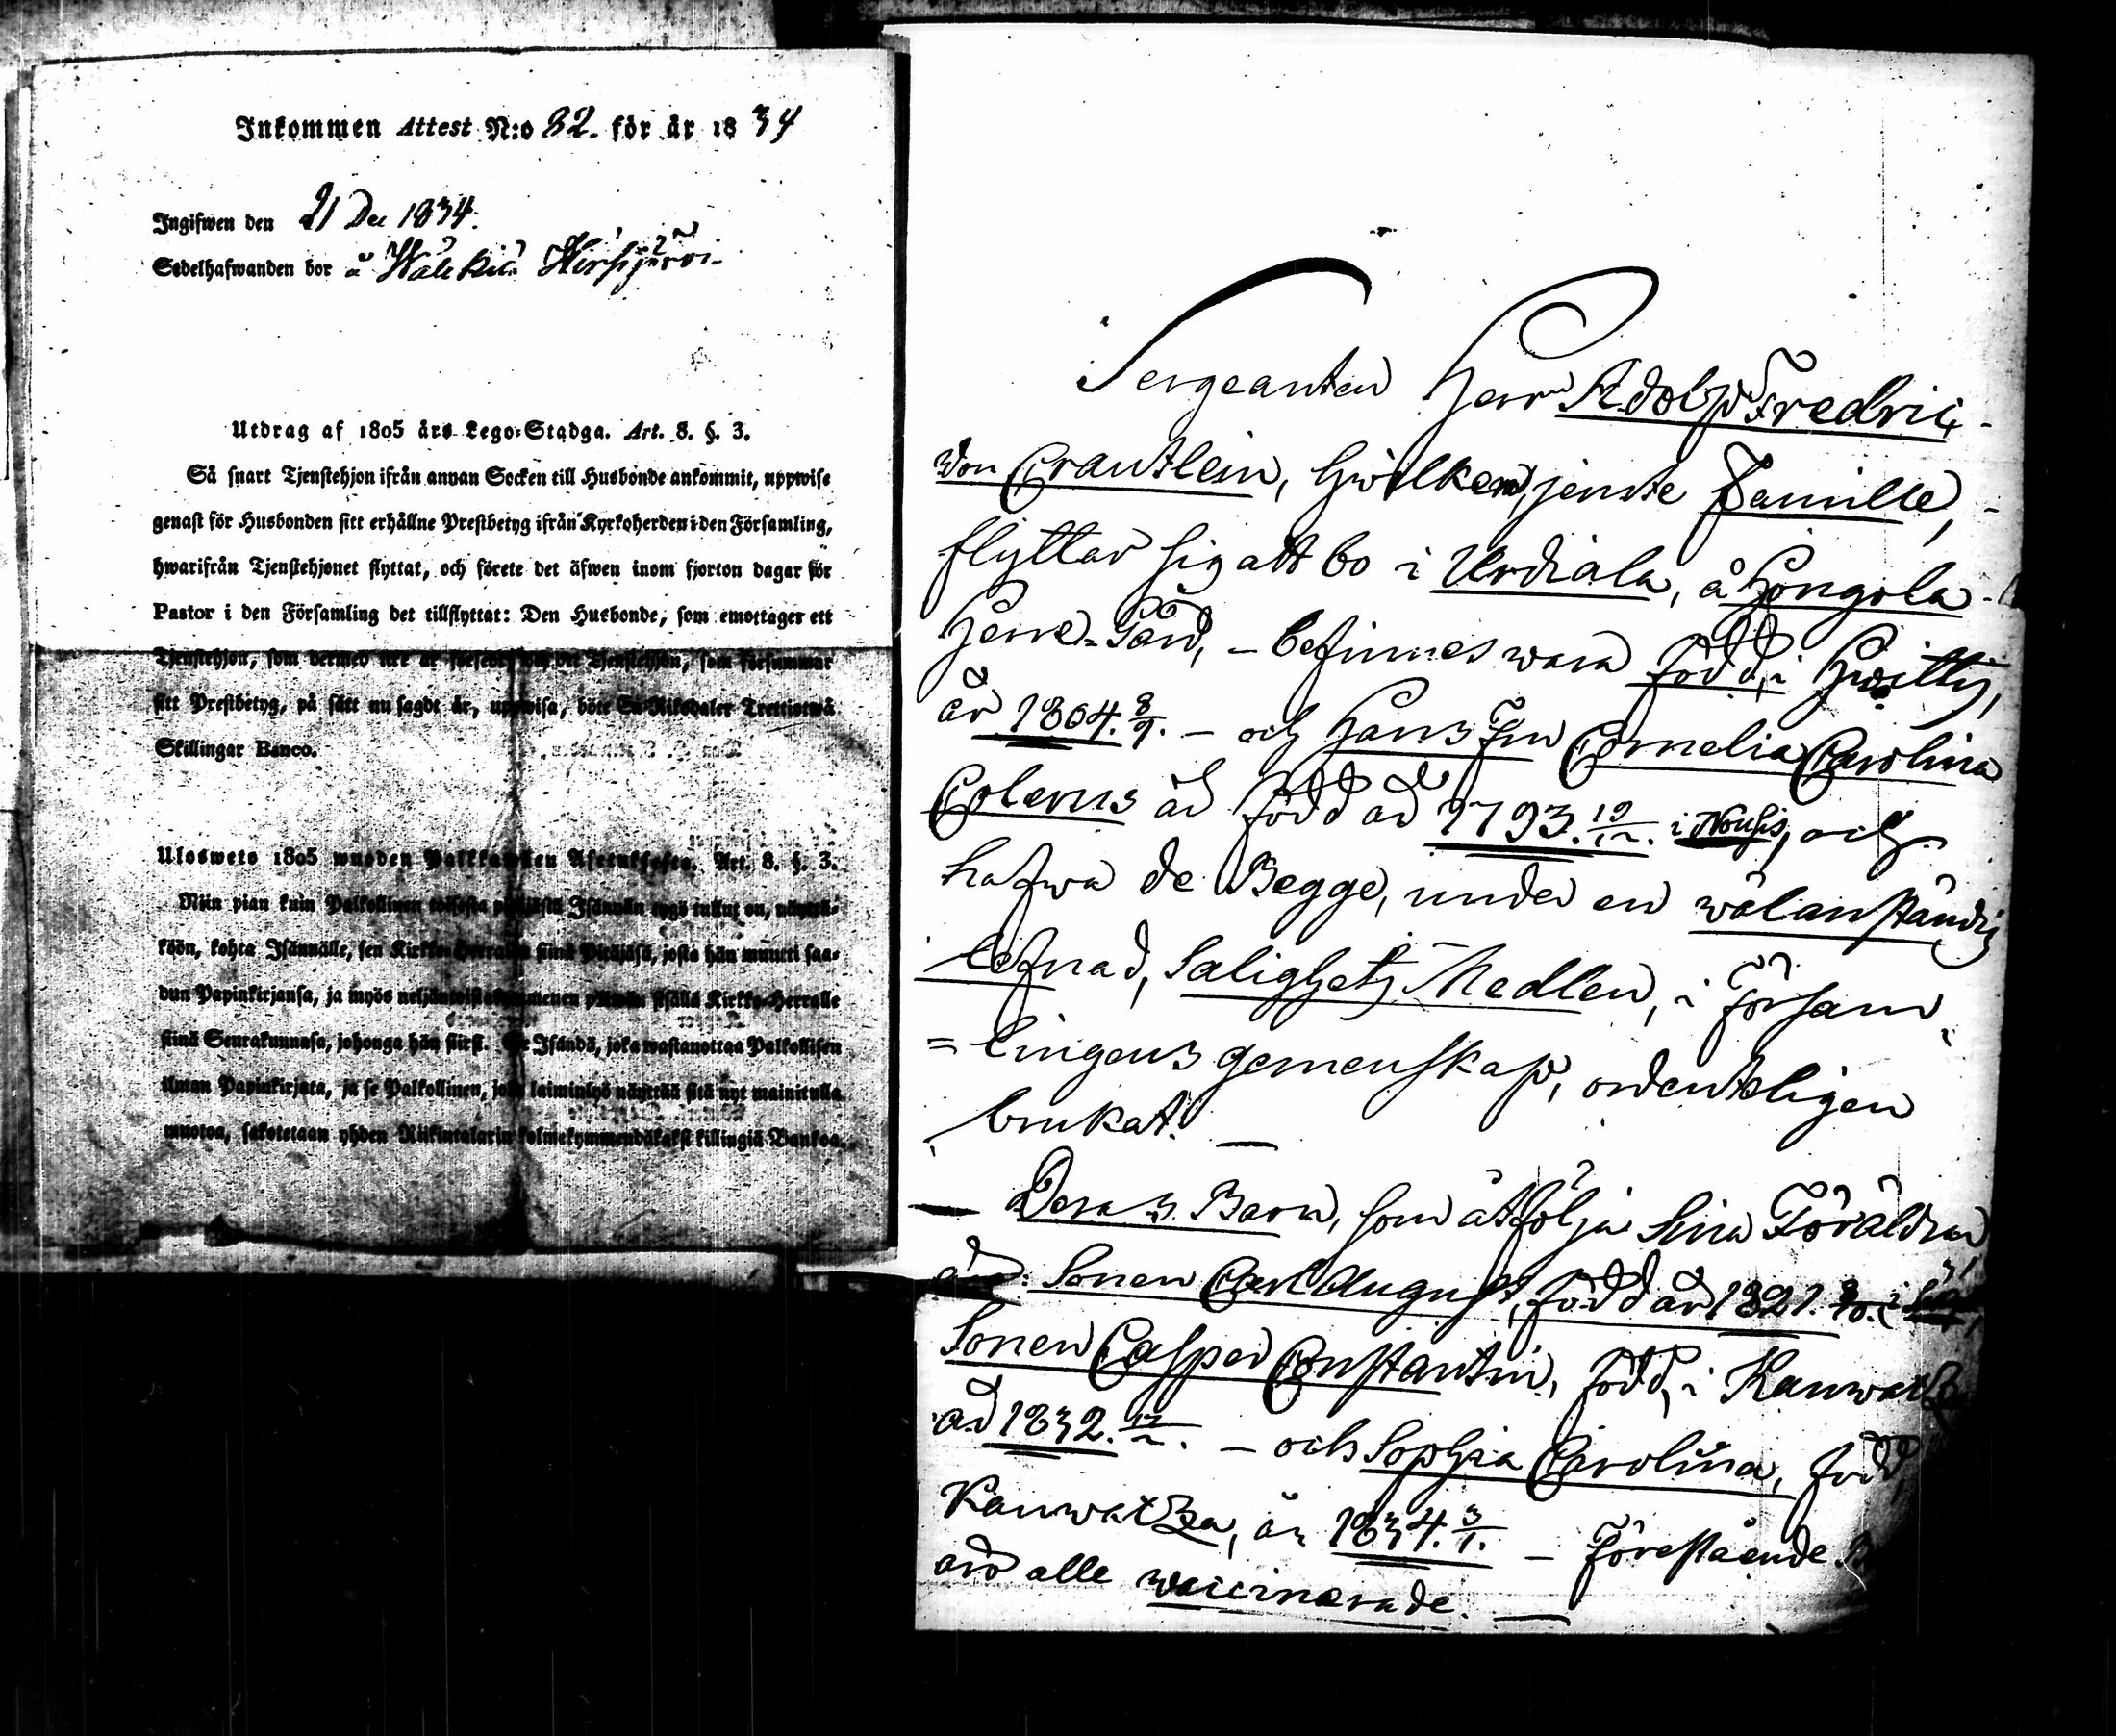 Inkommen Attest N:o 82. för år 1834
Ingifwen den 21 Dec 1834.
Sedelhafwanden bor å Hirsjärvi
Utdrag af 1805 års Lego-Stadga. Art. 8. §. 3.
Så snart Tjenstehjon ifrån annan Socken till Husbonde ankommit, uppwise
genast för Husbonden sitt erhållne Prestbetyg ifrån Kyrkoherden i den Församling,
hwarifrån Tjenstehjonet flyttat, och förete det äfwen inom fjorton dagar för
Pastor i den Församling det tillflyttat: Den Husbonde, som emottager ett
Tjenstehjon, som dermed icke är försedt, och det Tjenstehjon, som försummar
sitt Prestbetyg, på sätt nu sagdt är, uppwisa, böte En Riksdaler Trettiotwå
Skillingar Banco.
Ulosweto 1805 wuoden Palkkawäen Asetuksesta. Art. 8. §. 3.
Niin pian kuin Palkollinen toisesta pitäjästä Isännän tygö tullut on, näyttä-
köön, kohta Isännälle, sen Kirkko-Herralda siinä Pitäjäsä, josta hän muutti saa-
dun Papinkirjansa, ja myös neljäntoistakymmenen päiwän sisällä Kirkko-Herralle
siinä Seurakunnasa, johonga hän siirsi. Se Isändä, joka wastanottaa Palkollisen
ilman Papinkirjata, ja se Palkollinen, joka laiminlyö näyttää sitä nyt mainitulla
muotoa, sakotetaan yhden Riikintalarin kolmekymmendäkaksi killingiä Bankoa.
Sergeanten Herr Adolph Fredric
von Crantlein, hwilken, jemte Famille,
flyttar sig att bo i Urdiala, å Hongola
Herre-Gård, - befinnes wara född, i Hwittis,
år 1804. 8/9. - och Hans Fru Cornelia Carolina
Colerus är född år 1793. 19/12. i Nousis, och
hafwa de Begge, under en wälanständig
lefnad, Salighets Medlen, i Försam
=lingens gemenskap, ordenteligen
brukat. —
— Deras Barn, som åtfölja sina Föräldrar,
äro: Sonen Carl August, född år 1821. i
Sonen Casper Constantin, född, i Kauwatza
år 1832. 12/2. - och Sophia Carolina, född,
Kauwatza, år 1834. 3/1. - Förestående
äro alle waccinerade. —